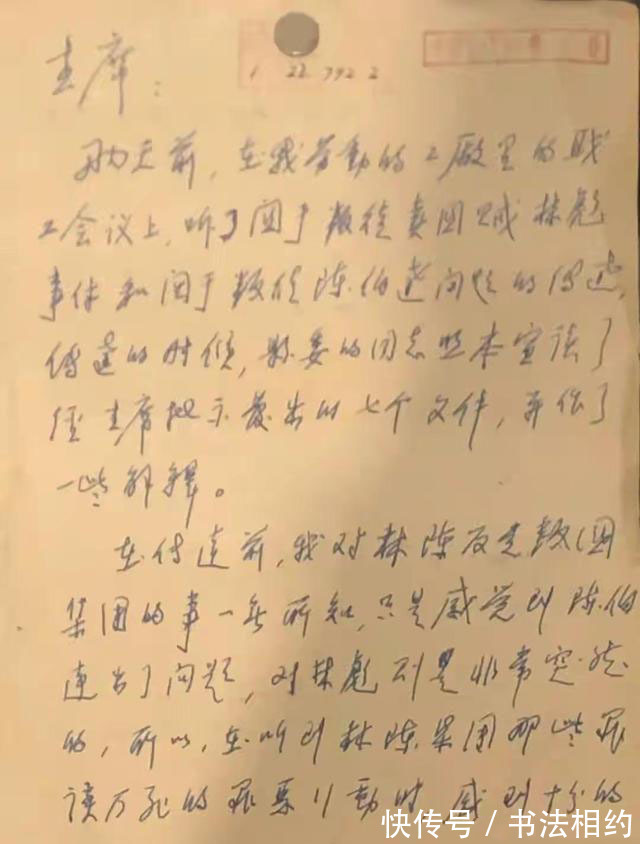 1 22 792 2
主席：
两天前，在我劳动的工厂里的职
工会议上，听了关于叛徒卖国贼林彪
事件和关于叛徒陈伯达问题的传达，
传达的时候，县委的同志照本宣读了
经主席批示发出的七个文件，并作了
一些解释。
在传达前，我对林陈反党叛国
集团的事一无所知，只是感觉到陈伯
达出了问题，对林彪则是非常突然
的，所以，在听到林陈集团那些罪
该万死的罪恶行动时，感到十分的
快传号/书法相约